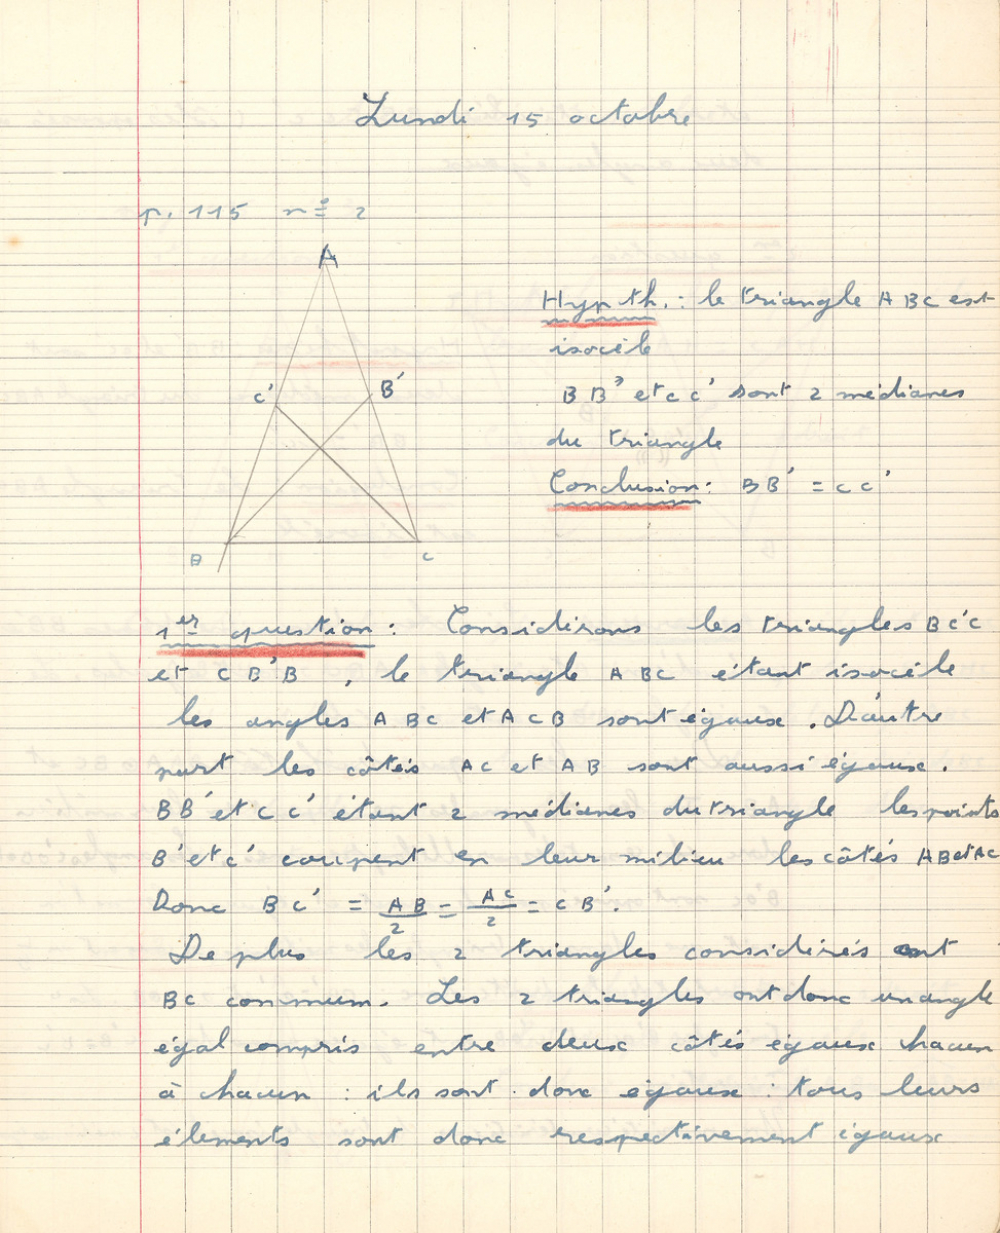 Lundi 15 octobre
p. 115 nº 2
A
Hypoth. : le triangle ABC est
isocèle
C' B'
BB' et CC' sont 2 médianes
du triangle
Conclusion : BB' = CC'
B C
1er question : Considérons les triangles BC'C
et CB'B, le triangle ABC étant isocèle
les angles ABC et ACB sont égaux. D'autre
part les côtés AC et AB sont aussi égaux.
BB' et CC' étant 2 médianes du triangle les points
B' et C' coupent en leur milieu les côtés AB et AC
Donc BC' = AB/2 = AC/2 = CB'.
De plus les 2 triangles considérés ont
BC commum. Les 2 triangles ont donc un angle
égal compris entre deux côtés égaux chacun
à chacun : ils sont donc égaux : tous leurs
élements sont donc respectivement égaux